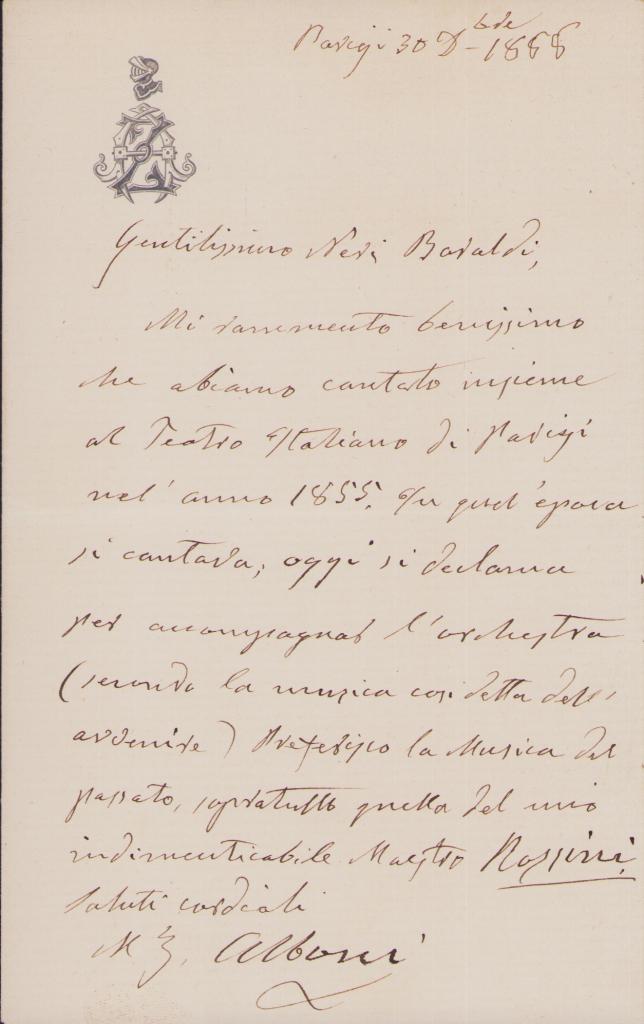 Parigi 30 Dbre 1888
Gentilissimo Neri Baraldi,
Mi rammento benissimo
che abiamo cantato insieme
al Teatro Italiano di Parigi
nel' anno 1855. In quel' epoca
si cantava; oggi si declama
per accompagnar l'orchestra
(secondo la musica così detta dell'
avvenire) Preferisco la Musica del
passato, sopratutto quella del mio
indimenticabile Maestro Rossini.
Saluti cordiali
Alboni